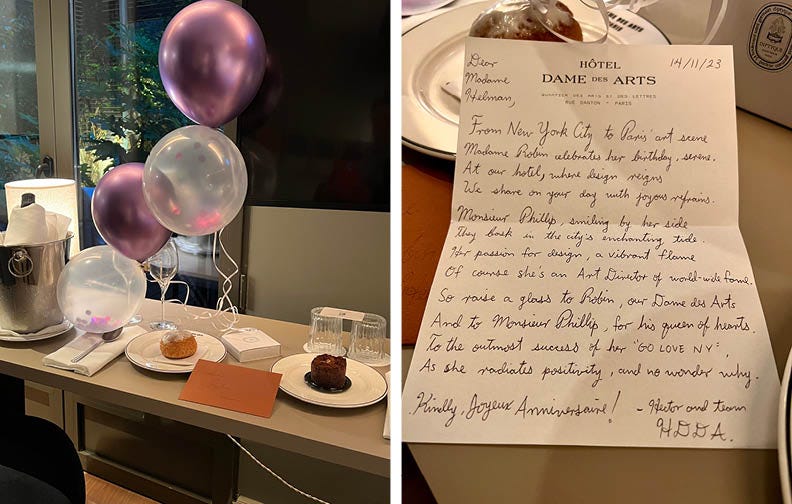 Dear
Madame
Helman,
14/11/23
HÔTEL
DAME DES ARTS
QUARTIER DES ARTS ET DES LETTRES
RUE DANTON - PARIS
From New York City to Paris' art scene
Madame Robin celebrates her birthday, serene.
At our hotel, where design reigns
We share on your day with joyous refrains.
Monsieur Phillip, smiling by her side
They bask in the city's enchanting tide.
Her passion for design, a vibrant flame
Of course she's an Art Director of world-wide fame.
So raise a glass to Robin, our Dame des Arts
And to Monsieur Phillip, for his queen of hearts.
To the outmost success of her "GO LOVE NY",
As she radiates positivity, and no wonder why.
Kindly, Joyeux Anniversaire! - Hector and team
HDDA.
DIPTYQUE